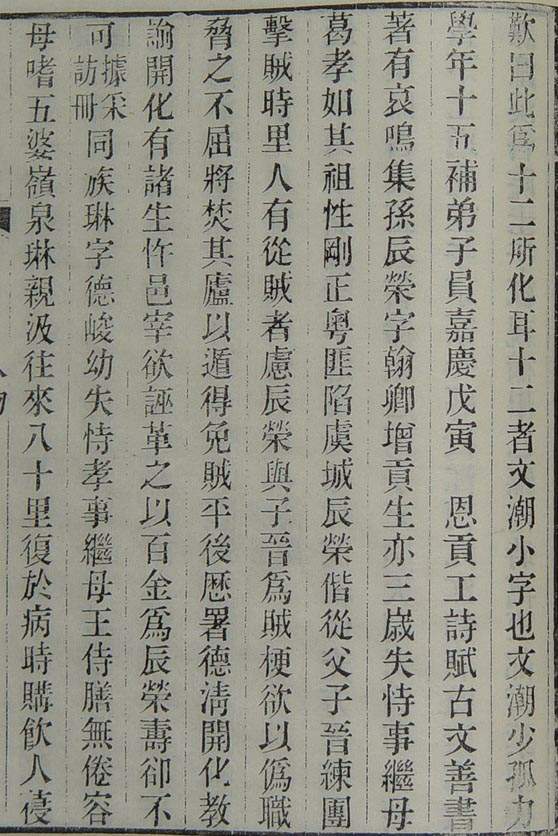 歎曰此爲十二所化耳十二者文潮小字也文潮少孤力
學年十五補弟子員嘉慶戊寅　恩貢工詩賦古文善書
著有哀鳴集孫辰榮字翰卿增貢生亦三歲失恃事繼母
葛孝如其祖性剛正粤匪陷虞城辰榮偕從父子晉練團
擊賊時里人有從賊者慮辰榮與子晉爲賊梗欲以僞職
脅之不屈將焚其廬以遁得免賊平後歷署德淸開化敎
諭開化有諸生忤邑宰欲誣革之以百金爲辰榮壽卻不
可據采訪冊同族琳字德峻幼失恃孝事繼母王侍膳無倦容
母嗜五婆嶺泉琳親汲往來八十里復於病時購飮人葠